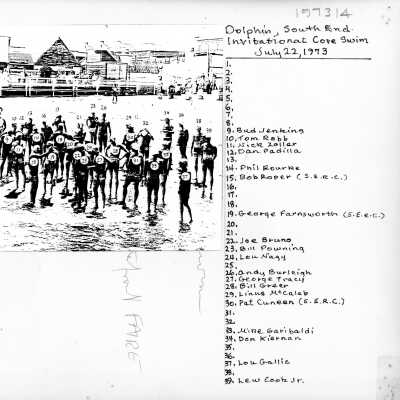 197314
Dolphin, South End
Invitational Cove Swim
July 22, 1973
1.
2.
3.
4.
5.
6.
7.
8.
9. Bud Jenking
10. Tom Robb
11. Nick Zoller
12. Dan Padilla
13.
14. Phil Rourke
15. Bob Roper (S.E.R.C.)
16.
17.
18.
19. George Farnsworth (S.E.R.C.)
20.
21.
22. Joe Bruno
23. Bill Powning
24. Lou Nagy
25.
26. Andy Burleigh
27. George Tracy
28. Bill Greer
29. Linus McCaleb
30. Pat Cuneen (S.E.R.C.)
31.
32.
33. Mike Garibaldi
34. Don Kiernan
35.
36.
37. Lou Gallic
38.
39. Lew Cook Jr.